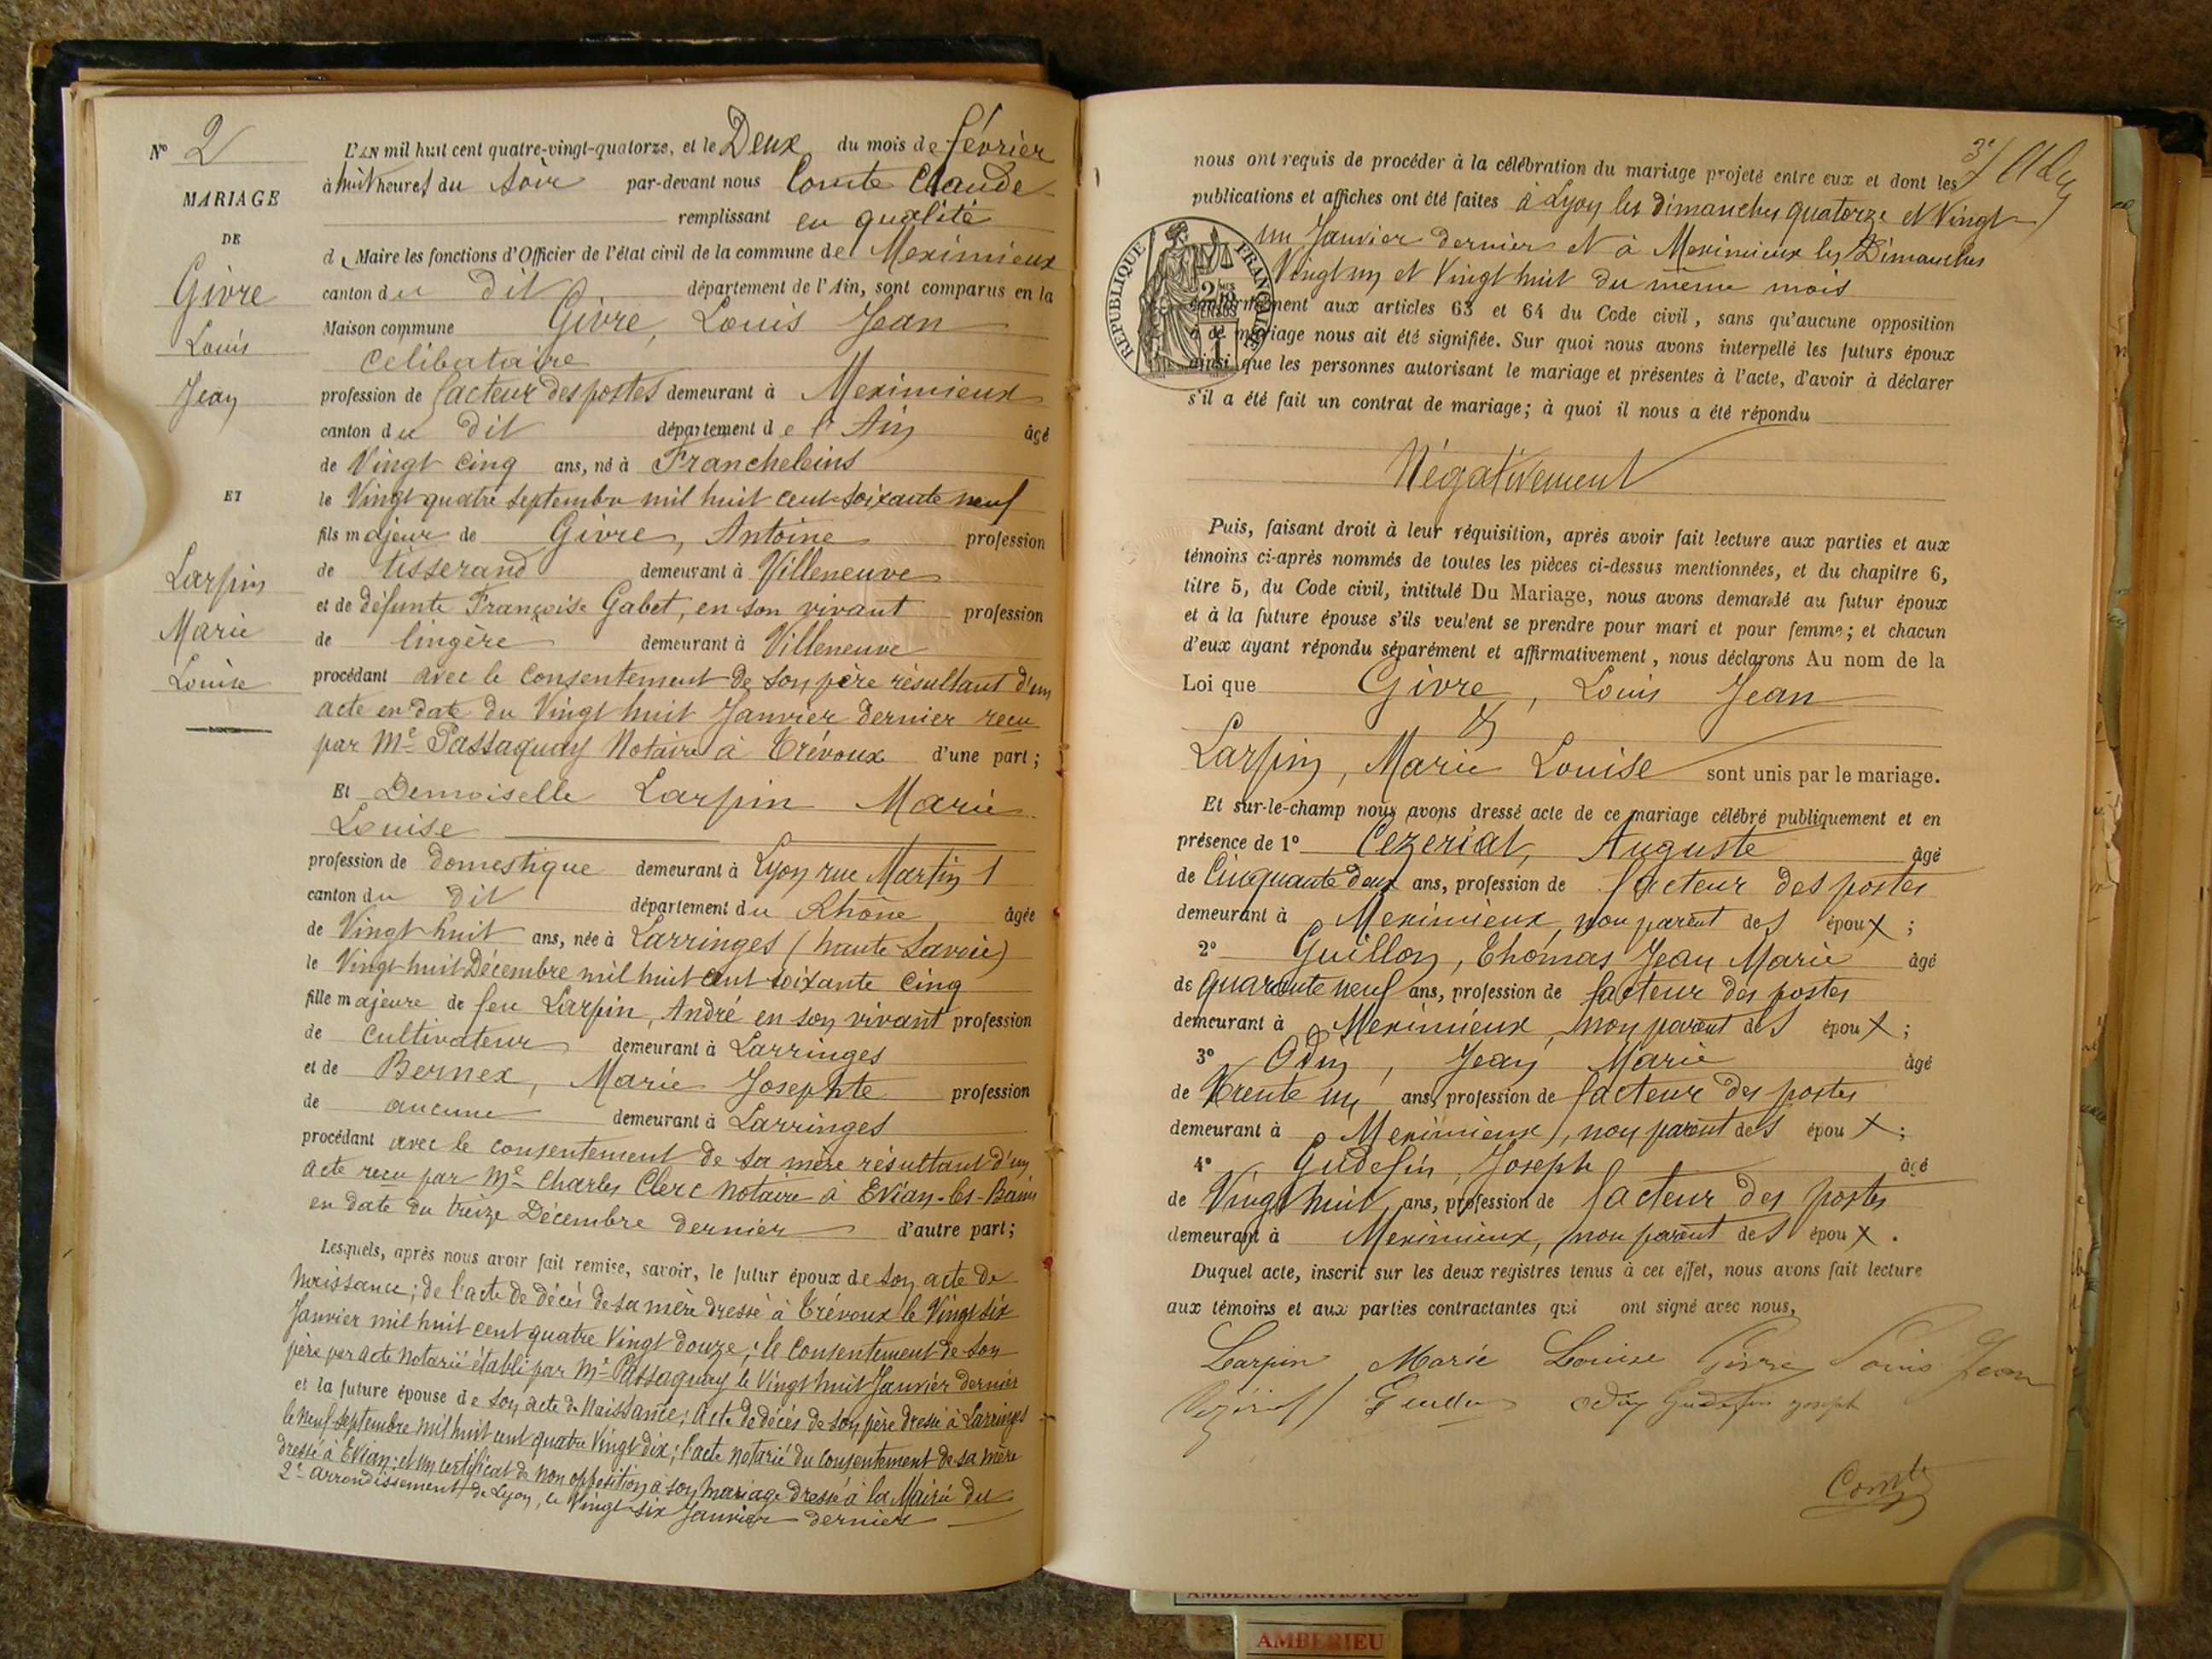 N° 2
MARIAGE
DE
Givre
Louis
Jean
ET
Larpin
Marie
Louise
L'AN mil huit cent quatre-vingt-quatorze, et le Deux du mois de février
à huit heures du soir par-devant nous Comte Claude
remplissant en qualité
de Maire les fonctions d'Officier de l'état civil de la commune de Meximieux
canton du dit département de l'Ain, sont comparus en la
Maison commune Givre, Louis Jean
celibataire
profession de facteur des postes demeurant à Meximieux
canton du dit département de l'Ain âgé
de Vingt cinq ans, né à Francheleins
le Vingt quatre septembre mil huit cent soixante neuf
fils majeur de Givre, Antoine profession
de tisserand demeurant à Villeneuve
et de défunte Françoise Gabet, en son vivant profession
de lingère demeurant à Villeneuve
procédant avec le consentement de son père résultant d'un
acte en date du Vingt huit Janvier dernier reçu
par Me Passaquay Notaire à Trévoux d'une part;
Et Demoiselle Larpin Marie
Louise
profession de domestique demeurant à Lyon rue Martin 1
canton du dit département du Rhône âgée
de Vingt huit ans, née à Larringes (haute Savoie)
le Vingt-huit Décembre mil huit cent soixante cinq
fille majeure de feu Larpin, André en son vivant profession
de cultivateur demeurant à Larringes
et de Bernex, Marie Josephte profession
de aucune demeurant à Larringes
procédant avec le consentement de sa mère résultant d'un
acte reçu par Me Charles Clerc notaire à Evian-les-Bains
en date du treize Décembre dernier d'autre part;
Lesquels, après nous avoir fait remise, savoir, le futur époux de son acte de
Naissance; de l'acte de décès de sa mère dressé à Trévoux le Vingt six
Janvier mil huit cent quatre Vingt douze; le consentement de son
père par acte Notarié établi par Me Passaquay le Vingt huit Janvier dernier
et la future épouse de son acte de Naissance; acte de décès de son père dressé à Larringes
le neuf septembre mil huit cent quatre Vingt dix; l'acte notarié du consentement de sa mère
dressé à Evian; et un certificat de non opposition à son mariage dressé à la Mairie du
2e arrondissement de Lyon, le Vingt-six Janvier dernier
nous ont requis de procéder à la célébration du mariage projeté entre eux et dont les
publications et affiches ont été faites à Lyon les dimanches quatorze et Vingt
un Janvier dernier et à Meximieux les Dimanches
Vingt un et Vingt huit du même mois
RÉPUBLIQUE FRANÇAISE
conformément aux articles 63 et 64 du Code civil, sans qu'aucune opposition
à ce mariage nous ait été signifiée. Sur quoi nous avons interpellé les futurs époux
ainsi que les personnes autorisant le mariage et présentes à l'acte, d'avoir à déclarer
s'il a été fait un contrat de mariage; à quoi il nous a été répondu
Négativement
Puis, faisant droit à leur réquisition, après avoir fait lecture aux parties et aux
témoins ci-après nommés de toutes les pièces ci-dessus mentionnées, et du chapitre 6,
titre 5, du Code civil, intitulé Du Mariage, nous avons demandé au futur époux
et à la future épouse s'ils veulent se prendre pour mari et pour femme; et chacun
d'eux ayant répondu séparément et affirmativement, nous déclarons Au nom de la
Loi que Givre, Louis Jean
et
Larpin, Marie Louise sont unis par le mariage.
Et sur-le-champ nous avons dressé acte de ce mariage célébré publiquement et en
présence de 1° Cezeriat, Auguste âgé
de Cinquante deux ans, profession de facteur des postes
demeurant à Meximieux, non parent des époux;
2° Guillon, Thomas Jean Marie âgé
de quarante neuf ans, profession de facteur des postes
demeurant à Meximieux, non parent des époux;
3° Odin, Jean Marie âgé
de Trente un ans, profession de facteur des postes
demeurant à Meximieux, non parent des époux;
4° Gudefin, Joseph âgé
de Vingt huit ans, profession de facteur des postes
demeurant à Meximieux, non parent des époux.
Duquel acte, inscrit sur les deux registres tenus à cet effet, nous avons fait lecture
aux témoins et aux parties contractantes qui ont signé avec nous,
Larpin Marie Louise Givre Louis Jean
Cezériat Guillon Odin Gudefin joseph
Comte
AMBERIEU ARTISTIQUE
AMBERIEU